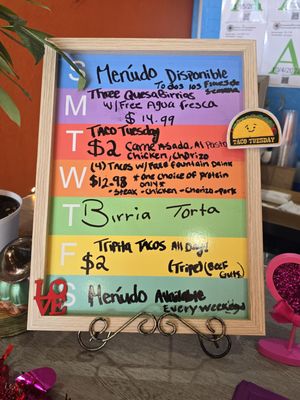 S
Menúdo Disponible
Todos los Fines de
Semana
M
Three QuesaBirrias
w/ Free Agua fresca
$14.99
T
Taco Tuesday
$2 Carne Asada, Al Pastor
Chicken, Chorizo
TACO TUESDAY
W
(4) Tacos w/ Free fountain Drink
$12.98 * one choice of protein
only *
- Steak - Chicken - Chorizo - Pork
T
Birria Torta
F
Tripita Tacos All Day!
$2 (Tripe) (Beef
Guts)
S
Menúdo Available
Every weekend
LOVE